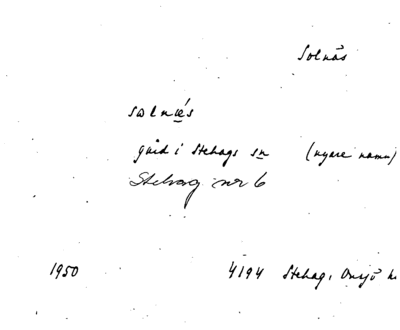 Solnäs
sωlnǽs
gård i Stehags sn (nyare namn)
Stehag nr 6
1950 4194 Stehag, Onsjö h